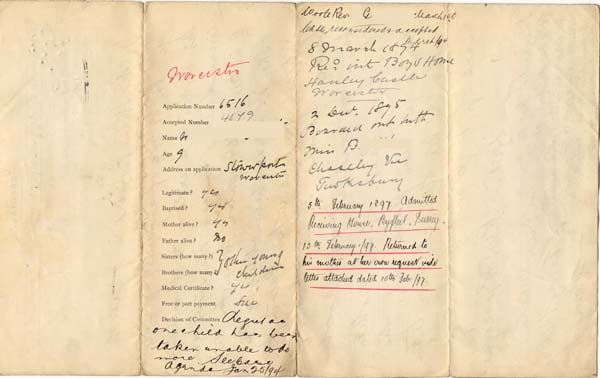 Worcester
Application Number 6516
Accepted Number 4679
Name
Age 9
Address on application Stourport
Worcester
Legitimate? Yes
Baptised? Yes
Mother alive? Yes
Father alive? No
Sisters (how many?) 7 other young
Brothers (how many?) children
Medical Certificate? Yes
Free or part payment Free
Decision of Committee Regret as
one child has been
taken unable to do
more. See Case
Agenda Jan 25/94
Wrote Rev. G
Case reconsidered & accepted
8 March 1894
Rec. into Boys Home
Hanley Castle
Worcester
2 Dec. 1895
Boarded out with
Miss B.
Chaseley Via
Tewkesbury
5th February 1897 Admitted
Receiving House, Byfleet, Surrey.
13th February /97. Returned to
his mother at her own request vide
letter attached dated 10th Feb. /97.